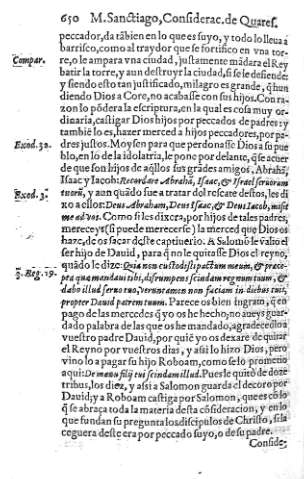 650 M. Sanctiago, Considerac. de Quares.
peccador, da tãbien en lo que es suyo, y todo lo lleua á
barrisco, como al traydor que se fortifico en vna tor-
Compar.
re, o le ampara vna ciudad, justamente mãdara el Rey
batir la torre, y aun destruyr la ciudad, si se le defiende:
y siendo esto tan justificado, milagro es grande, q̃ hun
diendo Dios a Core, no acabasse con sus hijos. Con ra-
zon lo põdera la escriptura, en la qual es cosa muy or-
dinaria, castigar Dios hijos por peccados de padres: y
tambiẽ lo es, hazer merced a hijos peccadores, por pa-
Exod. 20.
dres justos. Moysen para que perdonasse Dios a su pue
blo, en lo de la idolatria, le pone por delante, q̃ se acuer
de que son hijos de aq̃llos sus grãdes amigos, Abrahã,
Isaac y Iacob: Recordare Abrahã, Isaac, & Israel seruorum
Exod. 3.
tuorũ, y aun quãdo fue a tratar del rescate destos, les di
xo a essos: Deus Abraham, Deus Isaac, & Deus Iacob, misit
me ad vos. Como si les dixera, por hijos de tales padres,
mereceys (si puede merecerse) la merced que Dios os
haze, de os sacar deste captiuerio. A Salomõ le valio el
ser hijo de Dauid, para q̃ no le quitasse Dios el reyno,
quãdo le dize: Quia non custodisti pactum meum, & præce-
3. Reg. 19.
pta quæ mandaui tibi, disrumpens scindam regnum tuum, &
dabo illud seruo tuo, verumtamen non faciam in diebus tuis,
propter Dauid patrem tuum. Parece os bien ingrato, q̃ en
pago de las mercedes q̃ yo os he hecho, no aueys guar-
dado palabra de las que os he mandado, agradeceldo a
vuestro padre Dauid, por quiẽ yo os dexare de quitar
el Reyno por vuestros dias, y assi lo hizo Dios, pero
vino lo a pagar su hijo Roboam, como se lo prometio
aqui: De manu filij tui scindam illud. Pues le quitò de doze
tribus, los diez, y assi a Salomon guarda el decoro por
Dauid; y a Roboam castiga por Salomon, que es cõ lo
q̃ se abraça toda la materia desta cõsideracion, y en lo
que fundan su pregunta los discipulos de Christo, si la
ceguera deste era por peccado suyo, o de su padre.
Conside-